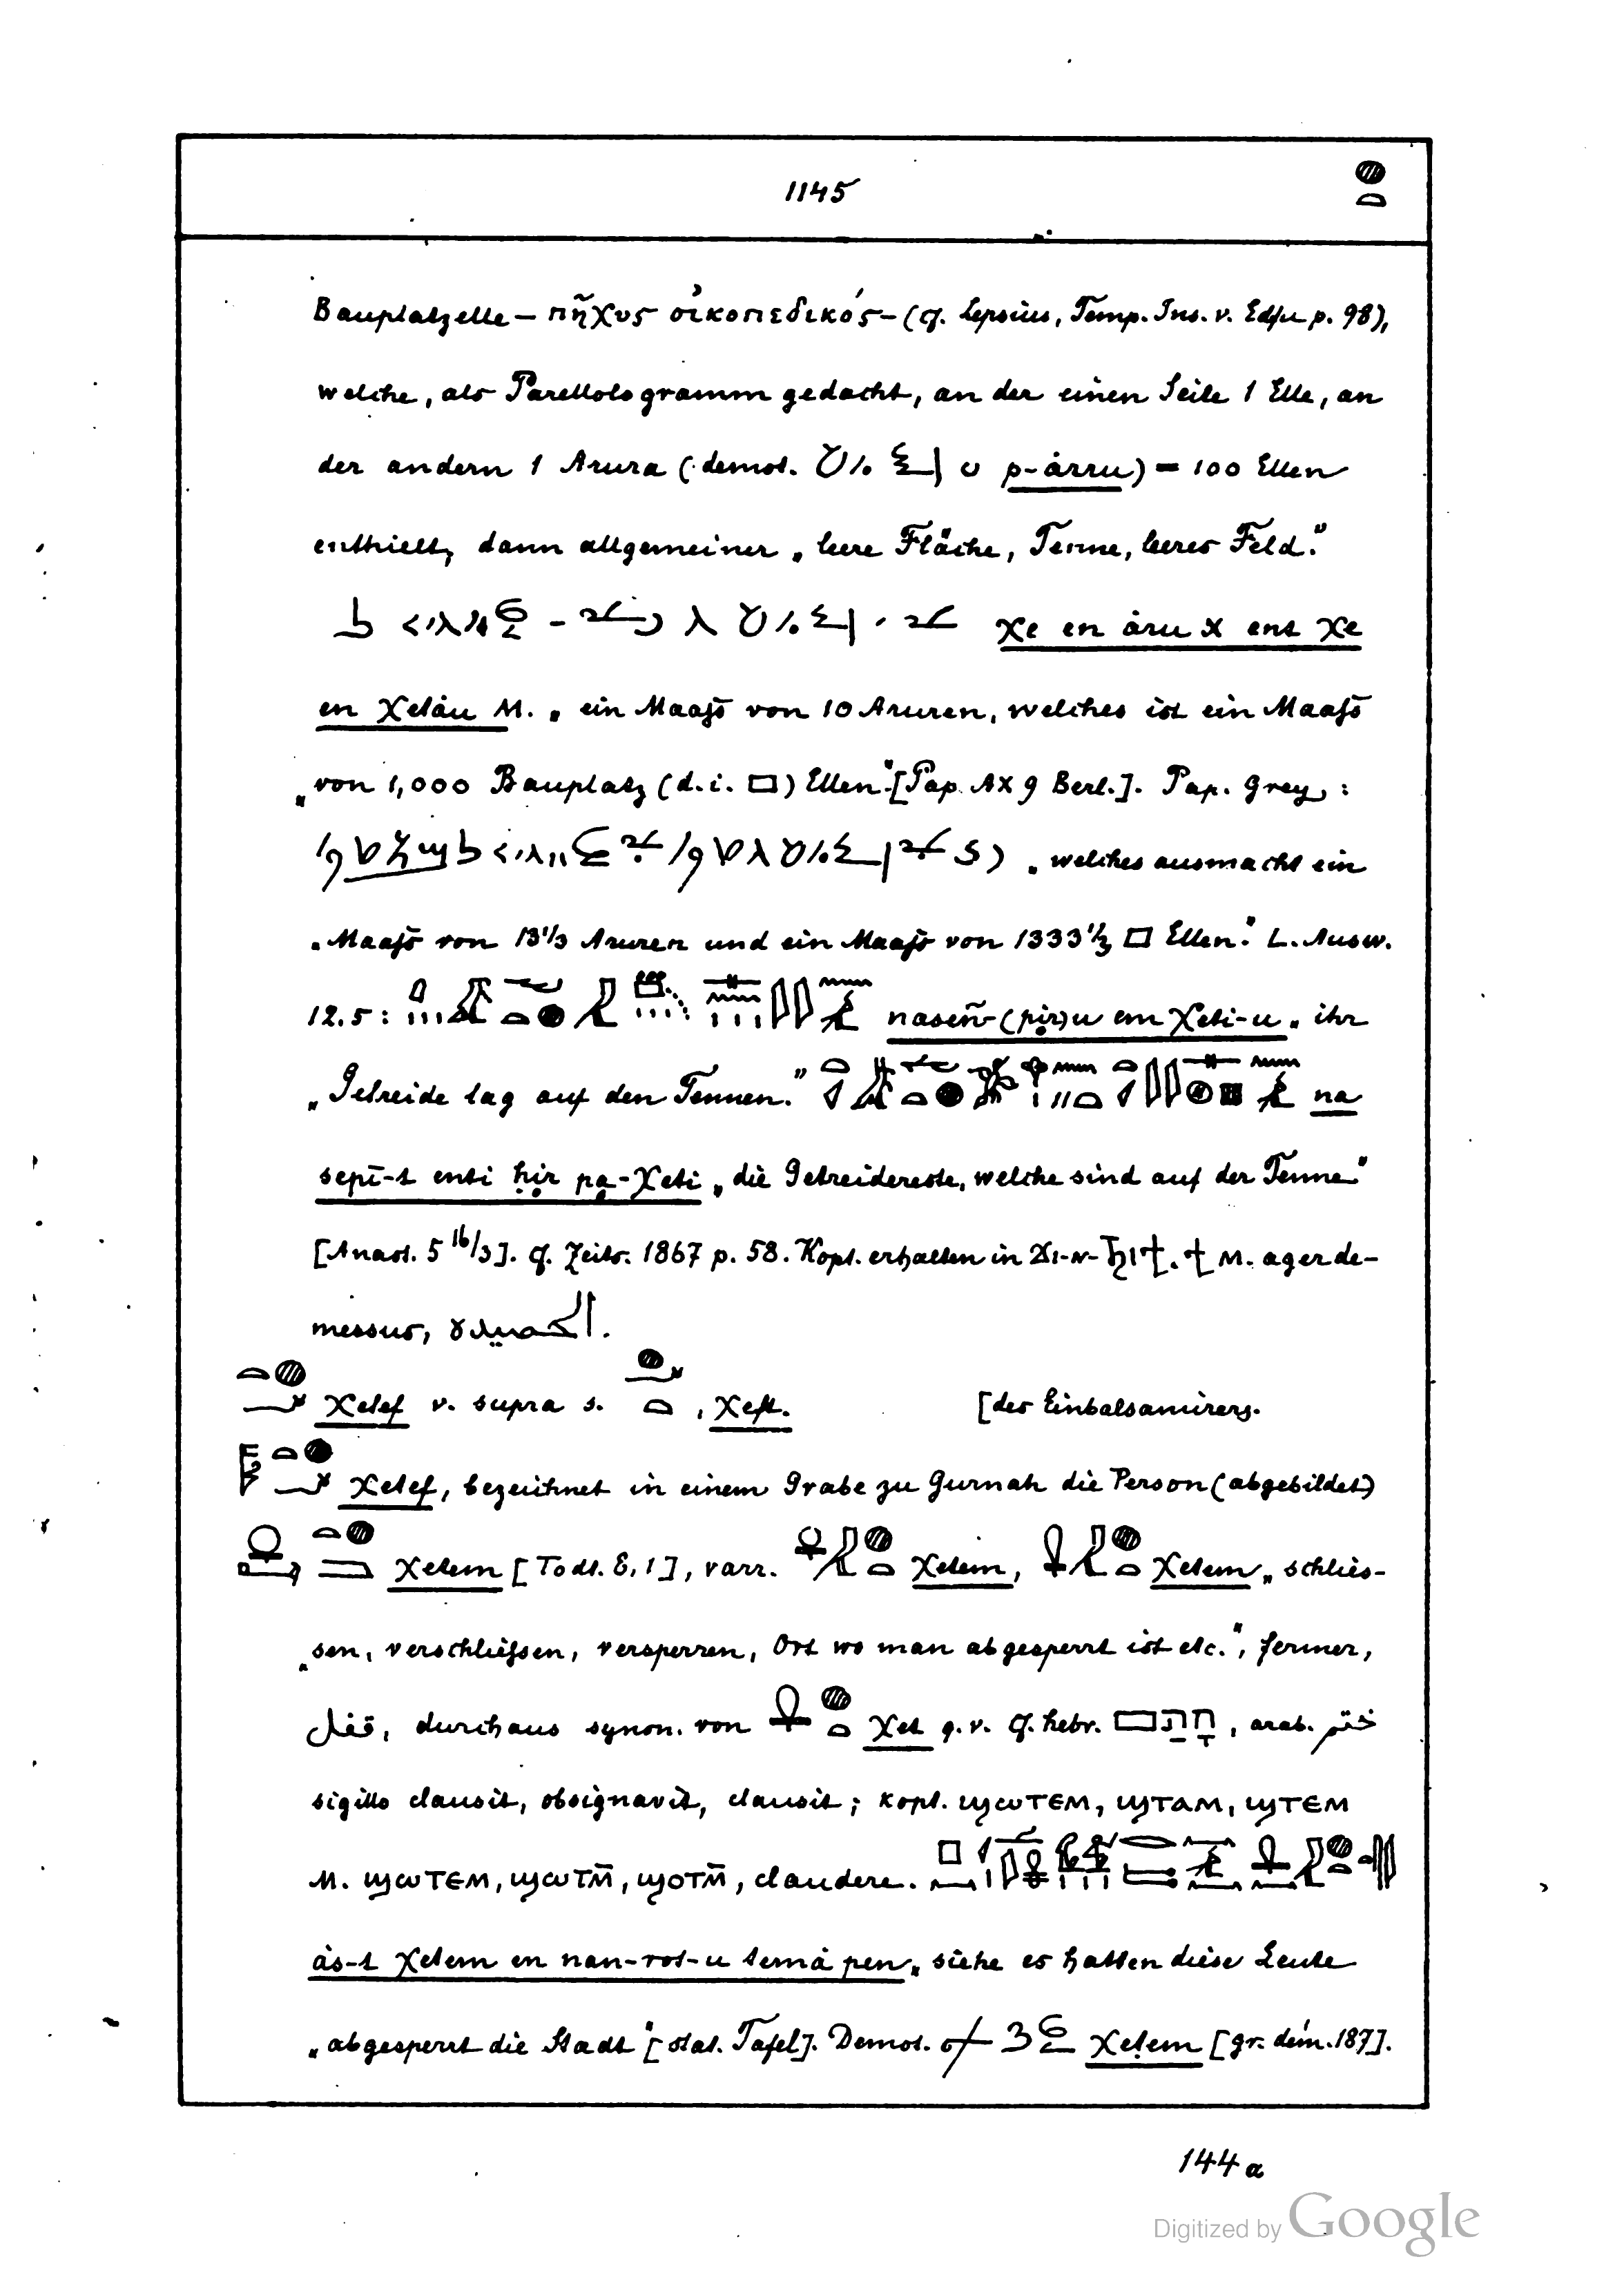 1145
Bauplatzelle – πῆχυς οἰκοπεδικός – (cf. Lepsius, Temp. Ins. v. Edfu p. 98),
welche, als Parellologramm gedacht, an der einen Seite 1 Elle, an
der andern 1 Arura (demot. p-árru) = 100 Ellen
enthielt, dann allgemeiner „leere Fläche, Tenne, leeres Feld."
χe en áru X ent χe
en χetáu M. „ein Maaß von 10 Aruren, welches ist ein Maaß
„von 1,000 Bauplatz (d.i. □) Ellen" [Pap. AX 9 Berl.]. Pap. Grey:
„welches ausmacht ein
„Maaß von 13⅓ Aruren und ein Maaß von 1333⅓ □ Ellen." L. Ausw.
12.5: nasen-(pir)u em χeti-u „ihr
„Getreide lag auf den Tennen." na
sepi-t enti ḥir pa-χeti „die Getreidereste, welche sind auf der Tenne"
[Anast. 5 16/3]. cf. Zeits. 1867 p. 58. Kopt. erhalten in ϫⲓ-ⲛ-ϧⲓϯ. ϯ M. ager de-
messus, الحصيدة.
χetef v. supra s. , χeft. [des Einbalsamirers.
χetef, bezeichnet in einem Grabe zu Gurnah die Person (abgebildet)
χetem [Todt. 8,1], varr. χetem, χetem „schlies-
„sen, verschließen, versperren, Ort wo man abgesperrt ist etc.", fermer,
قفل, durchaus synon. von χet q.v. cf. hebr. חָתַם, arab. ختم
sigillo clausit, obsignavit, clausit; kopt. ϣⲱⲧⲉⲙ, ϣⲧⲁⲙ, ϣⲧⲉⲙ
M. ϣⲱⲧⲉⲙ, ϣⲱⲧⲙ̄, ϣⲟⲧⲙ̄, claudere.
ás-t χetem en nan-rot-u temá pen „siehe es hatten diese Leute
„abgesperrt die Stadt" [stat. Tafel]. Demot. χetem [gr. dém. 187].
144a
Digitized by Google